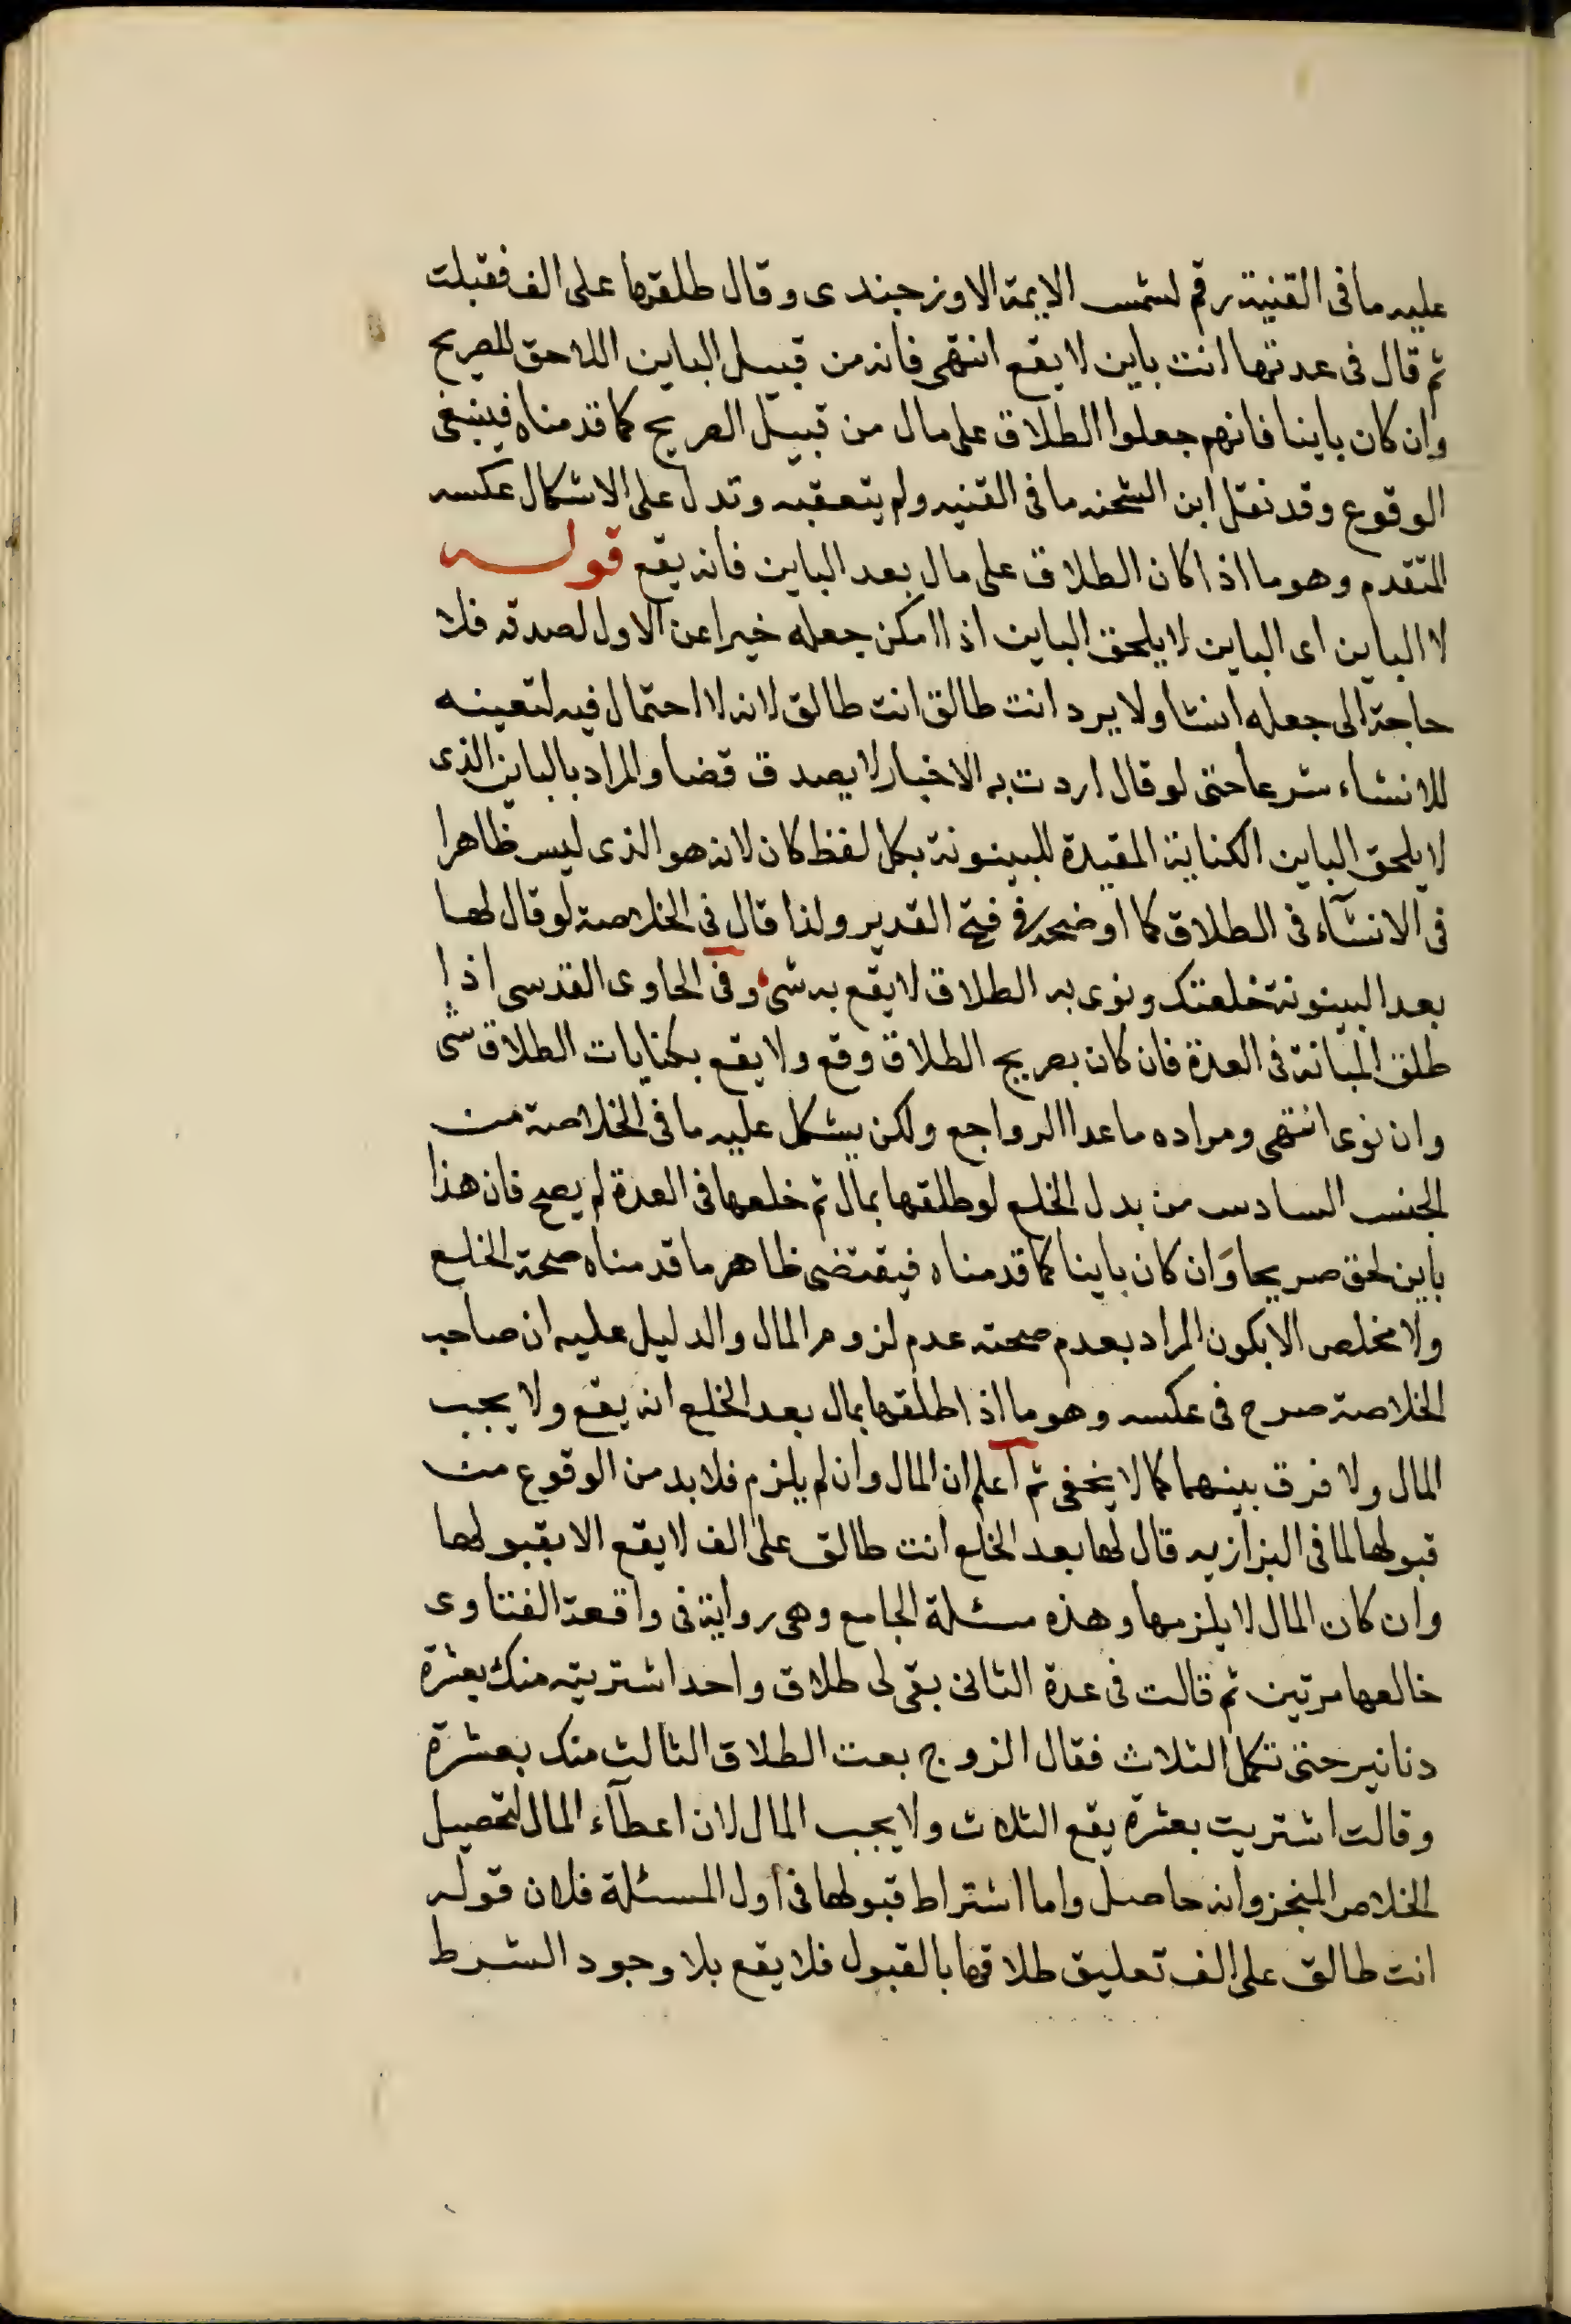 عليه ما فى القنية رقم لشمس الايمة الاوزجندى وقال طلقتها على الف فقبلت
ثم قال فى عدتها انت باين لا يقع انتهى فانه من قبيل الباين اللاحق للصريح
وان كان باينا فانهم جعلوا الطلاق على مال من قبيل الصريح كما قدمناه فينبغى
الوقوع وقد نقل ابن الشحنه ما فى القنيه ولم يتعقبه وتدل على الاشكال عكسه
المتقدم وهو ما اذا كان الطلاق على مال بعد الباين فانه يقع قوله
لا الباين اى الباين لا يلحق الباين اذا امكن جعله خبرا عن الاول لصدقه فلا
حاجة الى جعله انشأ ولا يرد انت طالق انت طالق لانه لا احتمال فيه لتعينه
للانشاء شرعا حتى لو قال اردت به الاخبار لا يصدق قضا والمراد بالباين الذى
لا يلحق الباين الكناية المقيدة للبينونة بكل لفظ كان لانه هو الذى ليس ظاهرا
فى الانشآء فى الطلاق كما اوضحه فى فتح القدير ولذا قال فى الخلاصة لو قال لها
بعد البينونة خلعتك ونوى به الطلاق لا يقع به شى وفى الحاوى القدسى اذا
طلق المبانة فى العدة فان كان بصريح الطلاق وقع ولا يقع بكنايات الطلاق شى
وان نوى انتهى ومراده ما عدا الرواجع ولكن يشكل عليه ما فى الخلاصة من
الجنس السادس من بدل الخلع لو طلقها بمال ثم خلعها فى العدة لم يصح فان هذا
باين لحق صريحا وان كان باينا كما قدمناه فيقتضى ظاهر ما قدمناه صحة الخلع
ولا مخلص الا بكون المراد بعدم صحته عدم لزوم المال والدليل عليه ان صاحب
الخلاصة صرح فى عكسه وهو ما اذا طلقها بمال بعد الخلع انه يقع ولا يجب
المال ولا فرق بينهما كما لا يخفى ثم اعلم ان المال وان لم يلزم فلا بد من الوقوع من
قبولها لما فى البزازيه قال لها بعد الخلع انت طالق على الف لا يقع الا بقبولها
وان كان المال لا يلزمها وهذه مسئلة الجامع وهى رواية فى واقعة الفتاوى
خالعها مرتين ثم قالت فى عدة الثانى بقى لى طلاق واحد اشتريته منك بعشرة
دنانير حتى تكمل الثلاث فقال الزوج بعت الطلاق الثالث منك بعشرة
وقالت اشتريت بعشرة يقع الثلاث ولا يجب المال لان اعطآء المال لتحصيل
الخلاص المنجز وانه حاصل واما اشتراط قبولها فى اول المسئلة فلان قوله
انت طالق على الف تعليق طلاقها بالقبول فلا يقع بلا وجود الشرط